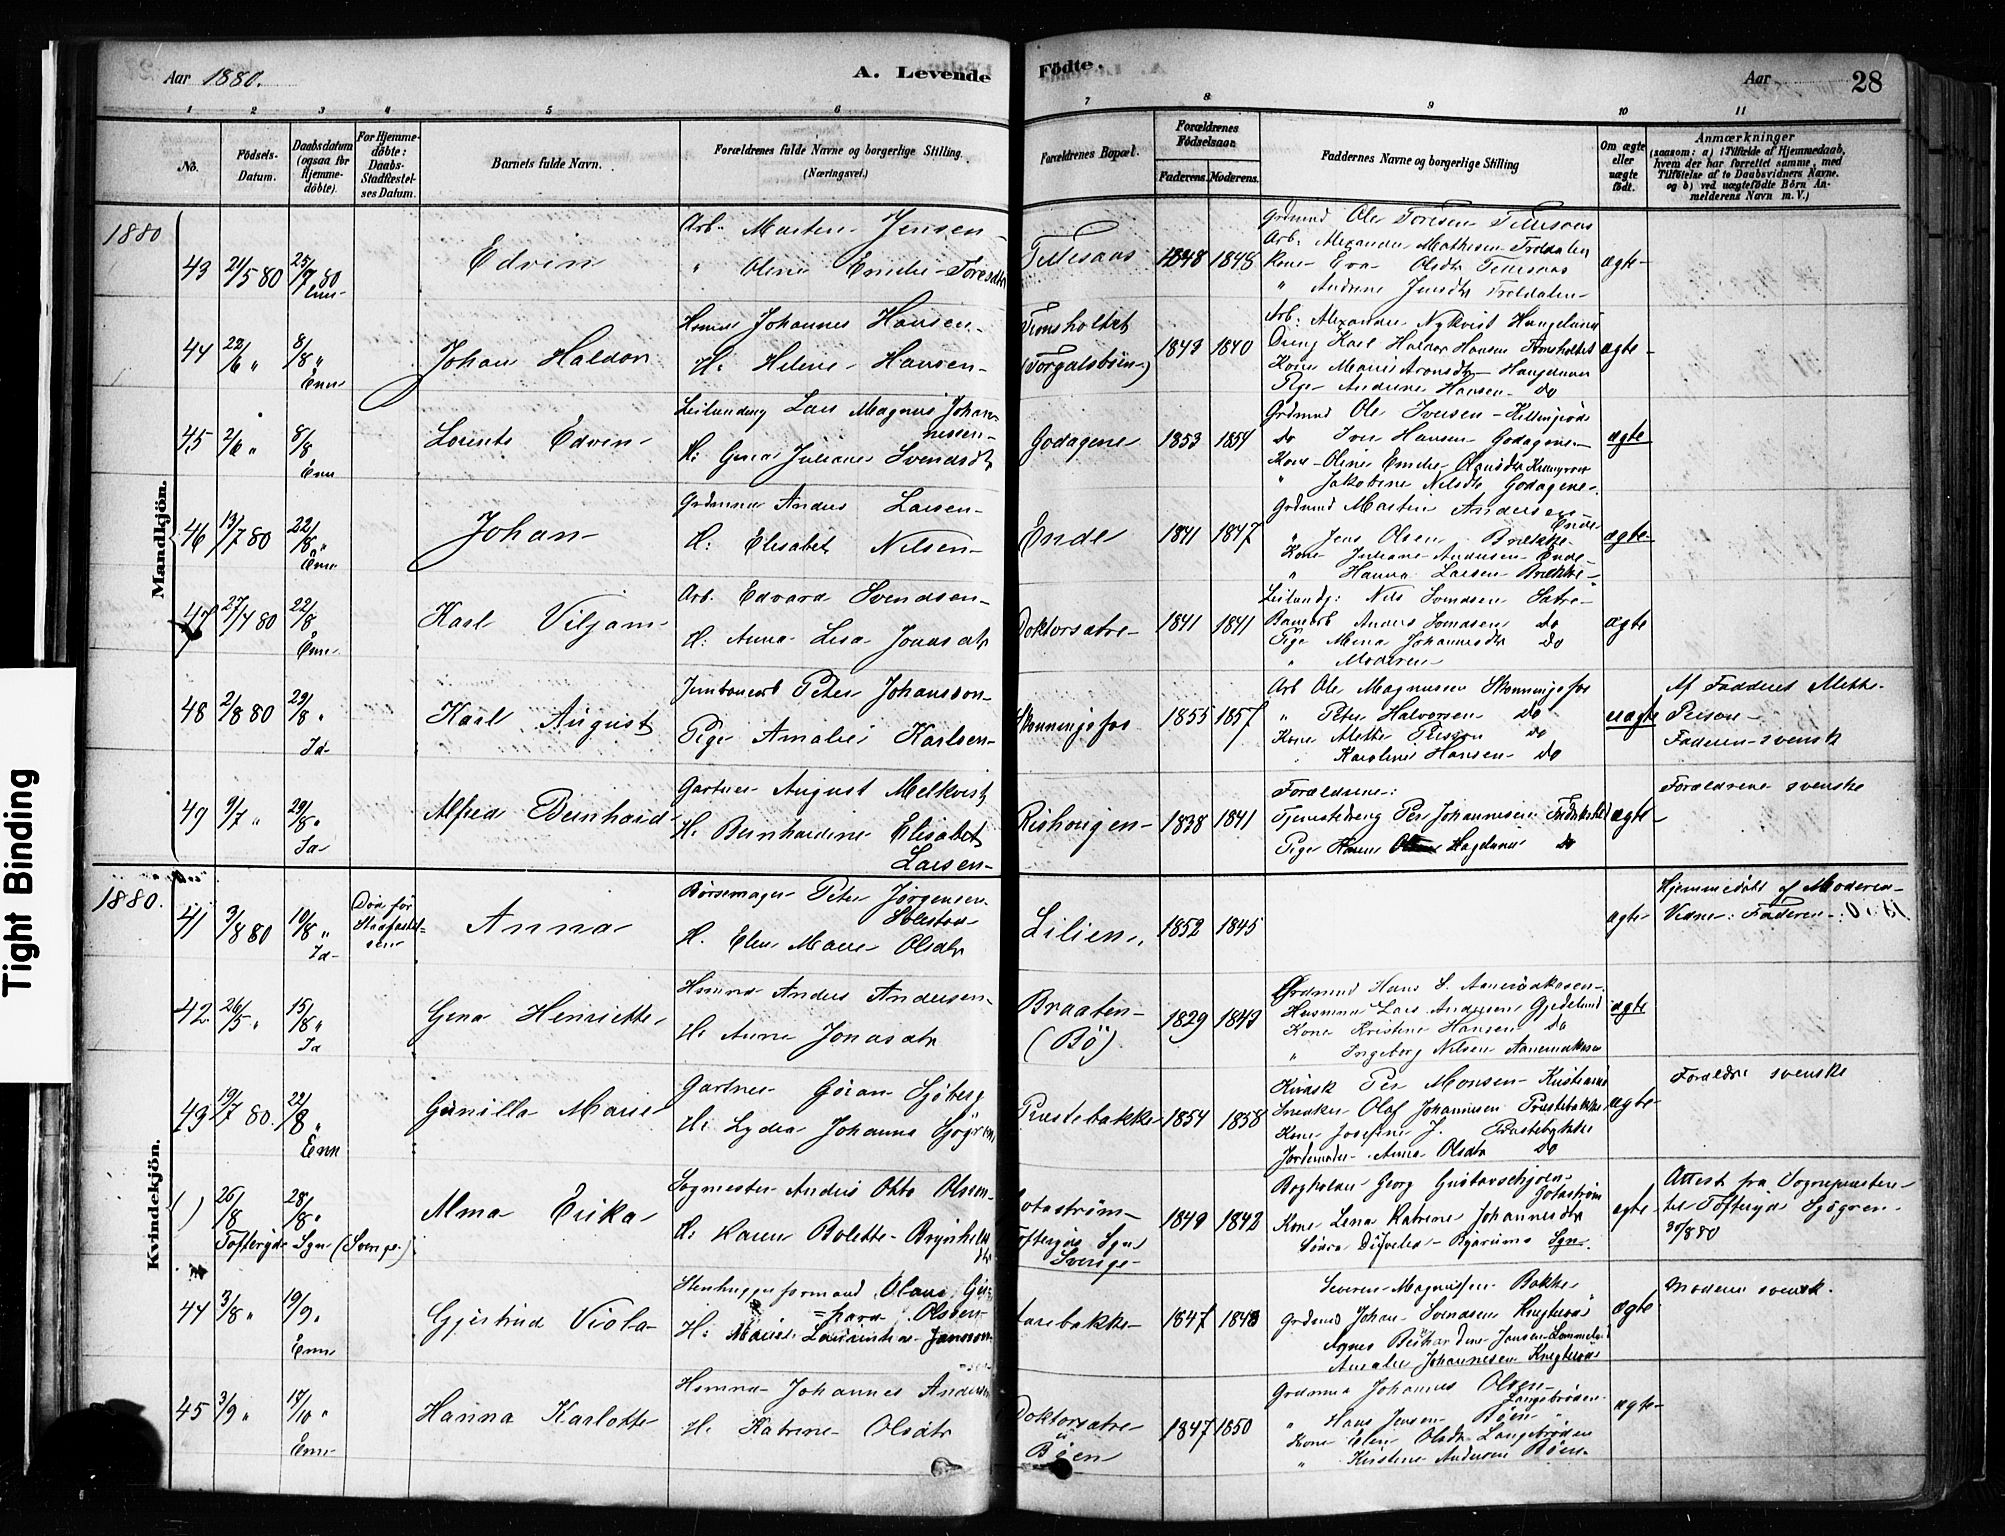 Aar 1880.
A. Levende
Födte.
Aar
28
1
2
3
4
5
6
7
8
9
10
11
No.
Födsels-Datum.
Daabsdatum (ogsaa for Hjemmedöbte).
For Hjemmedöbte: Daabs-Stadfæstelses Datum.
Barnets fulde Navn.
Forældrenes fulde Navne og borgerlige Stilling (Næringsvei.)
Forældrenes Bopæl.
Forældrenes Födselsaar.
Faderens.
Moderens.
Faddernes Navne og borgerlige Stilling
Om ægte eller uægte födt.
Anmærkninger
(saasom: a) i Tilfælde af Hjemmedaab,
hvem der har forrettet samme, med
Tilföielse af to Daabsvidners Navne.
og b) ved uægtefödte Börn An-
melderens Navn m. V.)
Mandkjön.
1880
43 21/5 80 25/7 80 Enn
Edvin
Arb. Martin Jensen
" Oline Emilie Toresdtr
Tillesaas 1848 1848
Grdmnd Ole Toresen Tillesaas
Arb. Alexander Mathisen Troldalen
Kone Eva Olsdtr Tillesaas
" Andrine Jensdtr Troldalen
ægte
44 22/6 " 8/8 " Enn
Johan Haldor
Johannes Hansen
H. Helene Hansen
(Torgalsböen)
1843 1840
Arb. Alexander Nykvist
Dreng Karl Halvor Hansen
Kone Marie Aronsdtr
Pige Andrine Hansen do
ægte
45 2/6 " 8/8 Enn
Lorents Edvin
Leilænding Lars Magnus Johan-
nessen
H. Gina Juliane Svendsdtr
Godagene 1853 1854
Grdmnd Ole Iversen
do Iver Hansen Godagene
Kone Oline Emilie Olausdtr
" Jakobine Nilsdtr Godagene
ægte
46 13/7 80 22/8 " Enn
Johan
Grdmnd Anders Larsen
H. Elisabet Nilsen
Ende 1841 1847
Grdmnd Martin Andersen
Ende
" Jens Olsen Brække
Kone Juliane Andersen Ende
" Hanna Larsen Brække
ægte
47 27/4 80 22/8 Enn
Karl Viljam
Arb. Edvard Svendsen
H. Anna Lisa Jonasdtr
Doktorsætre 1841 1841
Leilændg: Nils Svendsen Sætre
Anders Svendsen do
Pige Mina Johannesdtr do
" Moderen
ægte
48 2/8 80 29/8 " Id
Karl August
Jernbanearb Peter Johansson
Pige Amalie Karlsen
Skonningsfos 1855 1857
Arb Ole Magnusen Skonningsfos
" Peter Halvorsen do
Kone Mette Persson do
Karoline Hansen do
uægte
Af Fadderet Mette
Person
Faderen svensk
49 9/7 " 29/8 " Id
Alfred Bernhard
Gartner August Melkvist
H. Bernhardine Elisabet
Larsen
Rishaugen 1838 1841
Forældrene:
Tjenestedreng Per Johannesen Fredrikshld
Pige Hagelund do
ægte
Forældrene svenske
Kvindekjön.
1880.
41 3/8 80 10/8 " Id
Död för Stadfæstelsen
Anna
Börsemager Peter Jörgensen
H. Elen Marie Olsdtr
Lilien 1852 1845
ægte
Hjemmedöbt af Moderen
Vidne: Faderen
42 26/5 " 15/8 " Id
Gina Henriette
Husmnd Anders Andersen
H. Anne Jonasdtr
Braaten
(Bö)
1829 1843
Grdmnd Hans L.
Husmnd Lars Andersen Gjedelund
Kone Kristine Hansen do
" Ingeborg Nilsen
ægte
43 19/7 80. 22/8 " Enn
Gunilla Marie
Gartner Göran Sjöberg
H. Lydia Johanna Sjögren
Præstebakke 1854 1858
Per Monsen
Snedker Olaf Johannesen Præstebakke
Kone Josefine J. Præstebakke
Jordemoder Anna Olsdtr do
ægte
Forældre svenske
26/8 28/8 "
Tofteryd Sgn (Sverige)
Alma Erika
Anders Otto Olsen
H. Karen Bolette Brynhildsdtr
Götaström
Tofteryds Sgn
Sverige
1849 1842
Bogholder Georg Gustavschjöen
Götaström
Kone Lena Katrine Johannesdtr
Södra Bjarums Sgn.
ægte
Attest fra Sognepræsten
til Tofteryd Sjögren
30/8 80
44 3/8 " 19/9 " Enn
Gjertrud Viola
Stenhuggerformand Olaus Ger-
hard Olsen
H. Marie Laurentia Jansson
1847 1848
Severin Magnussen Bakke
Grdmnd Johan Svendsen
Agnes Jansen
Amalie Johannesen
ægte
Modern svensk.
45 3/9 " 17/10 " Enn
Hanna Karlotte
Husmnd Johannes Andersen
H. Katrine Olsdtr
Doktorsætre
Böen
1847 1850
Grdmnd Johannes Olsen
Langebröden
" Hans Jensen Böen
Kone Elin Olsdtr Langebröden
" Kirstine Andersen Böen
ægte
Tight Binding